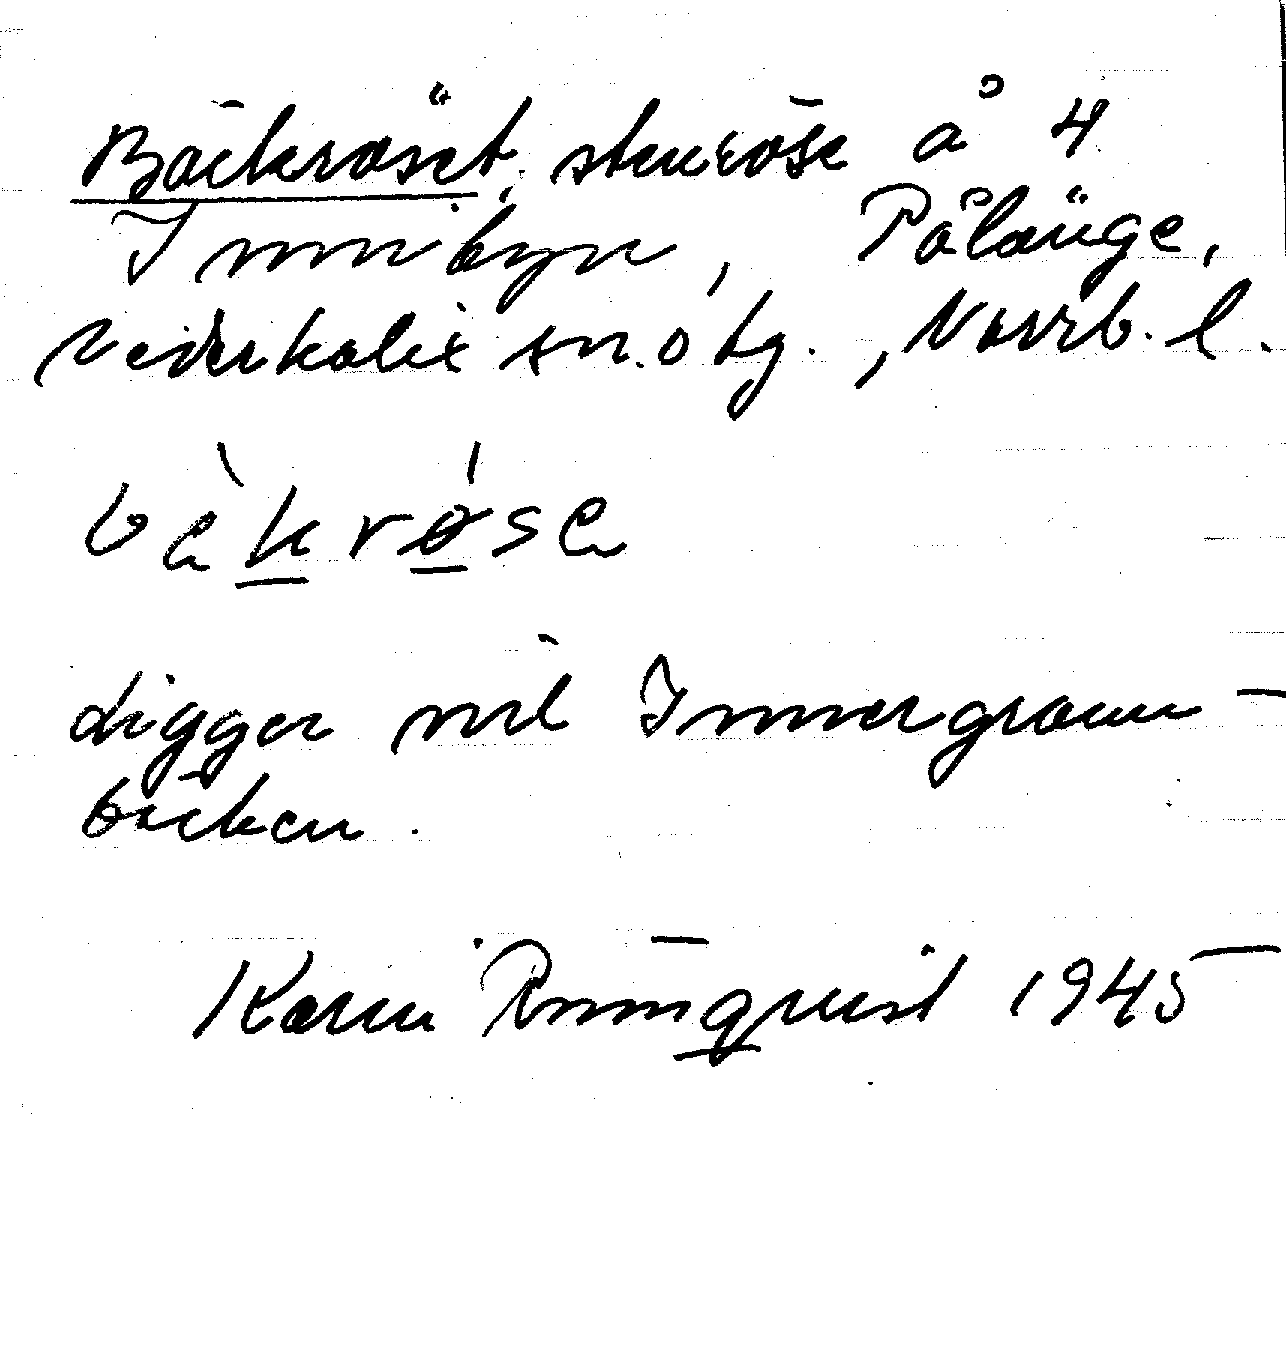 Bäckröset, stenröse å 4
Innibyn, Pålänge,
Nederkalix sn. o tg., Norrb. l.
bèkrø̀se
Ligger vid Innergramm-
bäcken.
Karin Rönnqvist 1945